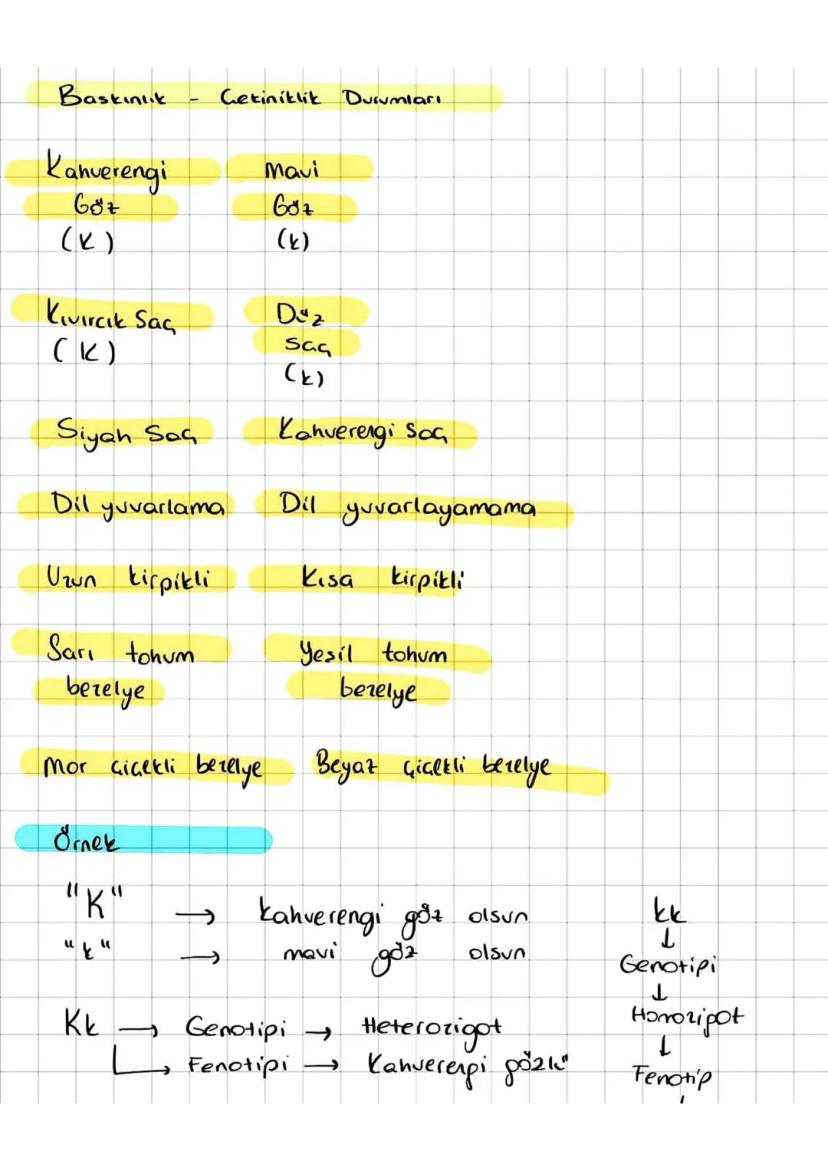 Baskınlık - Çekiniklik Durumları
Kahverengi Göz (K)
Mavi Göz (k)
Kıvırcık Saç (K)
Düz saç (k)
Siyah Saç
Kahverengi Saç
Dil yuvarlama
Dil yuvarlayamama
Uzun kirpikli
Kısa kirpikli
Sarı tohum bezelye
Yeşil tohum bezelye
Mor çiçekli bezelye
Beyaz çiçekli bezelye
Örnek
"K" → kahverengi göz olsun
"k" → mavi göz olsun
Kk → Genotipi → Heterozigot
→ Fenotipi → Kahverengi gözlü
kk
↓
Genotipi
↓
Homozigot
↓
Fenotip